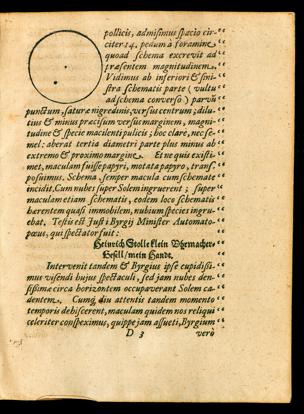 pollicis, admisimus spacio cir-
citer 14. pedum à foramine,
quoad schema excrevit ad
præsentem magnitudinem.
Vidimus ab inferiori & sini-
stra schematis parte (vultu
ad schema converso) parvū
punctum, saturæ nigredinis, versus centrum; dilu-
tius & minus præcisum versus marginem, magni-
tudine & specie macilenti pulicis; hoc clare, nec se-
mel: aberat tertia diametri parte plus minus ab
extremo & proximo margine. Et ne quis existi-
met, maculam fuisse papyri, motata papyro, trans-
posuimus. Schema semper macula cum schemate
incidit. Cum nubes super Solem ingruerent; super
maculam etiam schematis, eodem loco schematis
hærentem quasi immobilem, nubium species ingru-
ebat. Testis est Justi Byrgij Minister Automato-
pœus, qui spectator fuit:
Heinrich Stolle klein Vhrmacher
Gesell/mein Handt.
Intervenit tandem & Byrgius ipse cupidissi-
mus visendi hujus spectaculi, sed jam nubes den-
sissimæ circa horizontem occupaverant Solem ca-
dentem. Cumq́; diu attentis tandem momento
temporis dehiscerent, maculam quidem nos reliqui
celeriter conspeximus, quippe jam assueti, Byrgium
D 3 verò